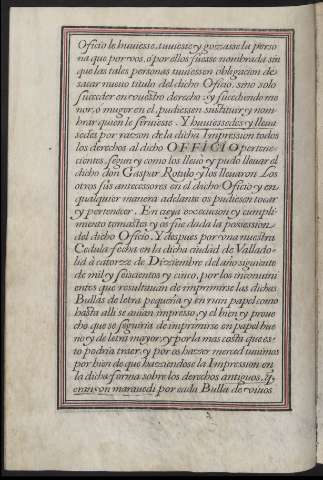 Oficio le huuiesse, tuuiesse y gozasse la perso
na que por vos, o por ellos fuesse nombrada sin
que las tales personas tuuiessen obligacion de
sacar nueuo titulo del dicho Oficio, sino solo
suceder en vuestro derecho: y sucediendo me
nor, o muger en el, pudiessen sustituir y nom
brar quien le siruiesse. Y huuiessedes y lleua
sedes por razon de la dicha Impression todos
los derechos al dicho OFFICIO pertene
cientes, segun y como los lleuo y pudo lleuar el
dicho don Gaspar Rotulo y los lleuaron Los
otros sus antecessores en el dicho Oficio y en
qualquier manera adelante os pudiesen tocar
y pertenecer. En cuya execucion y cumpli
miento tomastes y os fue dada la possession
del dicho Oficio. Y despues por vna nuestra
Cedula fecha en la dicha ciudad de Vallado
lid à catorze de Dizziembre del año siguiente
de mil y seiscientos y cinco, por los inconuini
entes que resultauan de imprimirse las dichas
Bullas de letra pequeña y en ruin papel como
hasta alli se auian impresso: y el bien y proue
cho que se seguiria de imprimirse en papel bue
no y de letra mayor: y por la mas costa que es
to podria traer, y por os hazer merced tuuimos
por bien de que haziendose la Impression en
la dicha forma sobre los derechos antiguos, q̃
eran, vn marauedi por cada Bulla de viuos